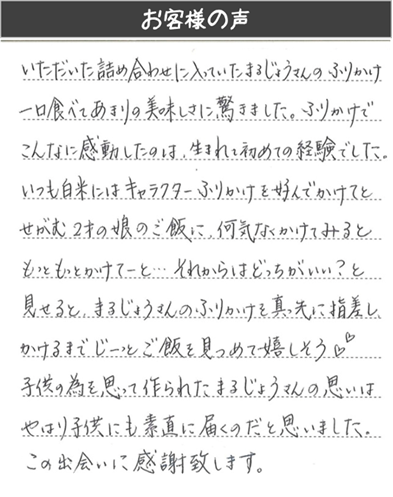 お客様の声
いただいた詰め合わせに入っていたまるじょうさんのふりかけ
一口食べてあまりの美味しさに驚きました。ふりかけで
こんなに感動したのは、生まれて初めての経験でした。
いつも白米にはキャラクターふりかけを好んでかけてと
せがむ2才の娘のご飯に、何気なくかけてみると
もっともっとかけてーと…それからはどっちがいい?と
見せると、まるじょうさんのふりかけを真っ先に指差し、
かけるまでじーっとご飯を見つめて嬉しそう♡♡
子供の為を思って作られたまるじょうさんの思いは
やはり子供にも素直に届くのだと思いました。
この出会いに感謝致します。